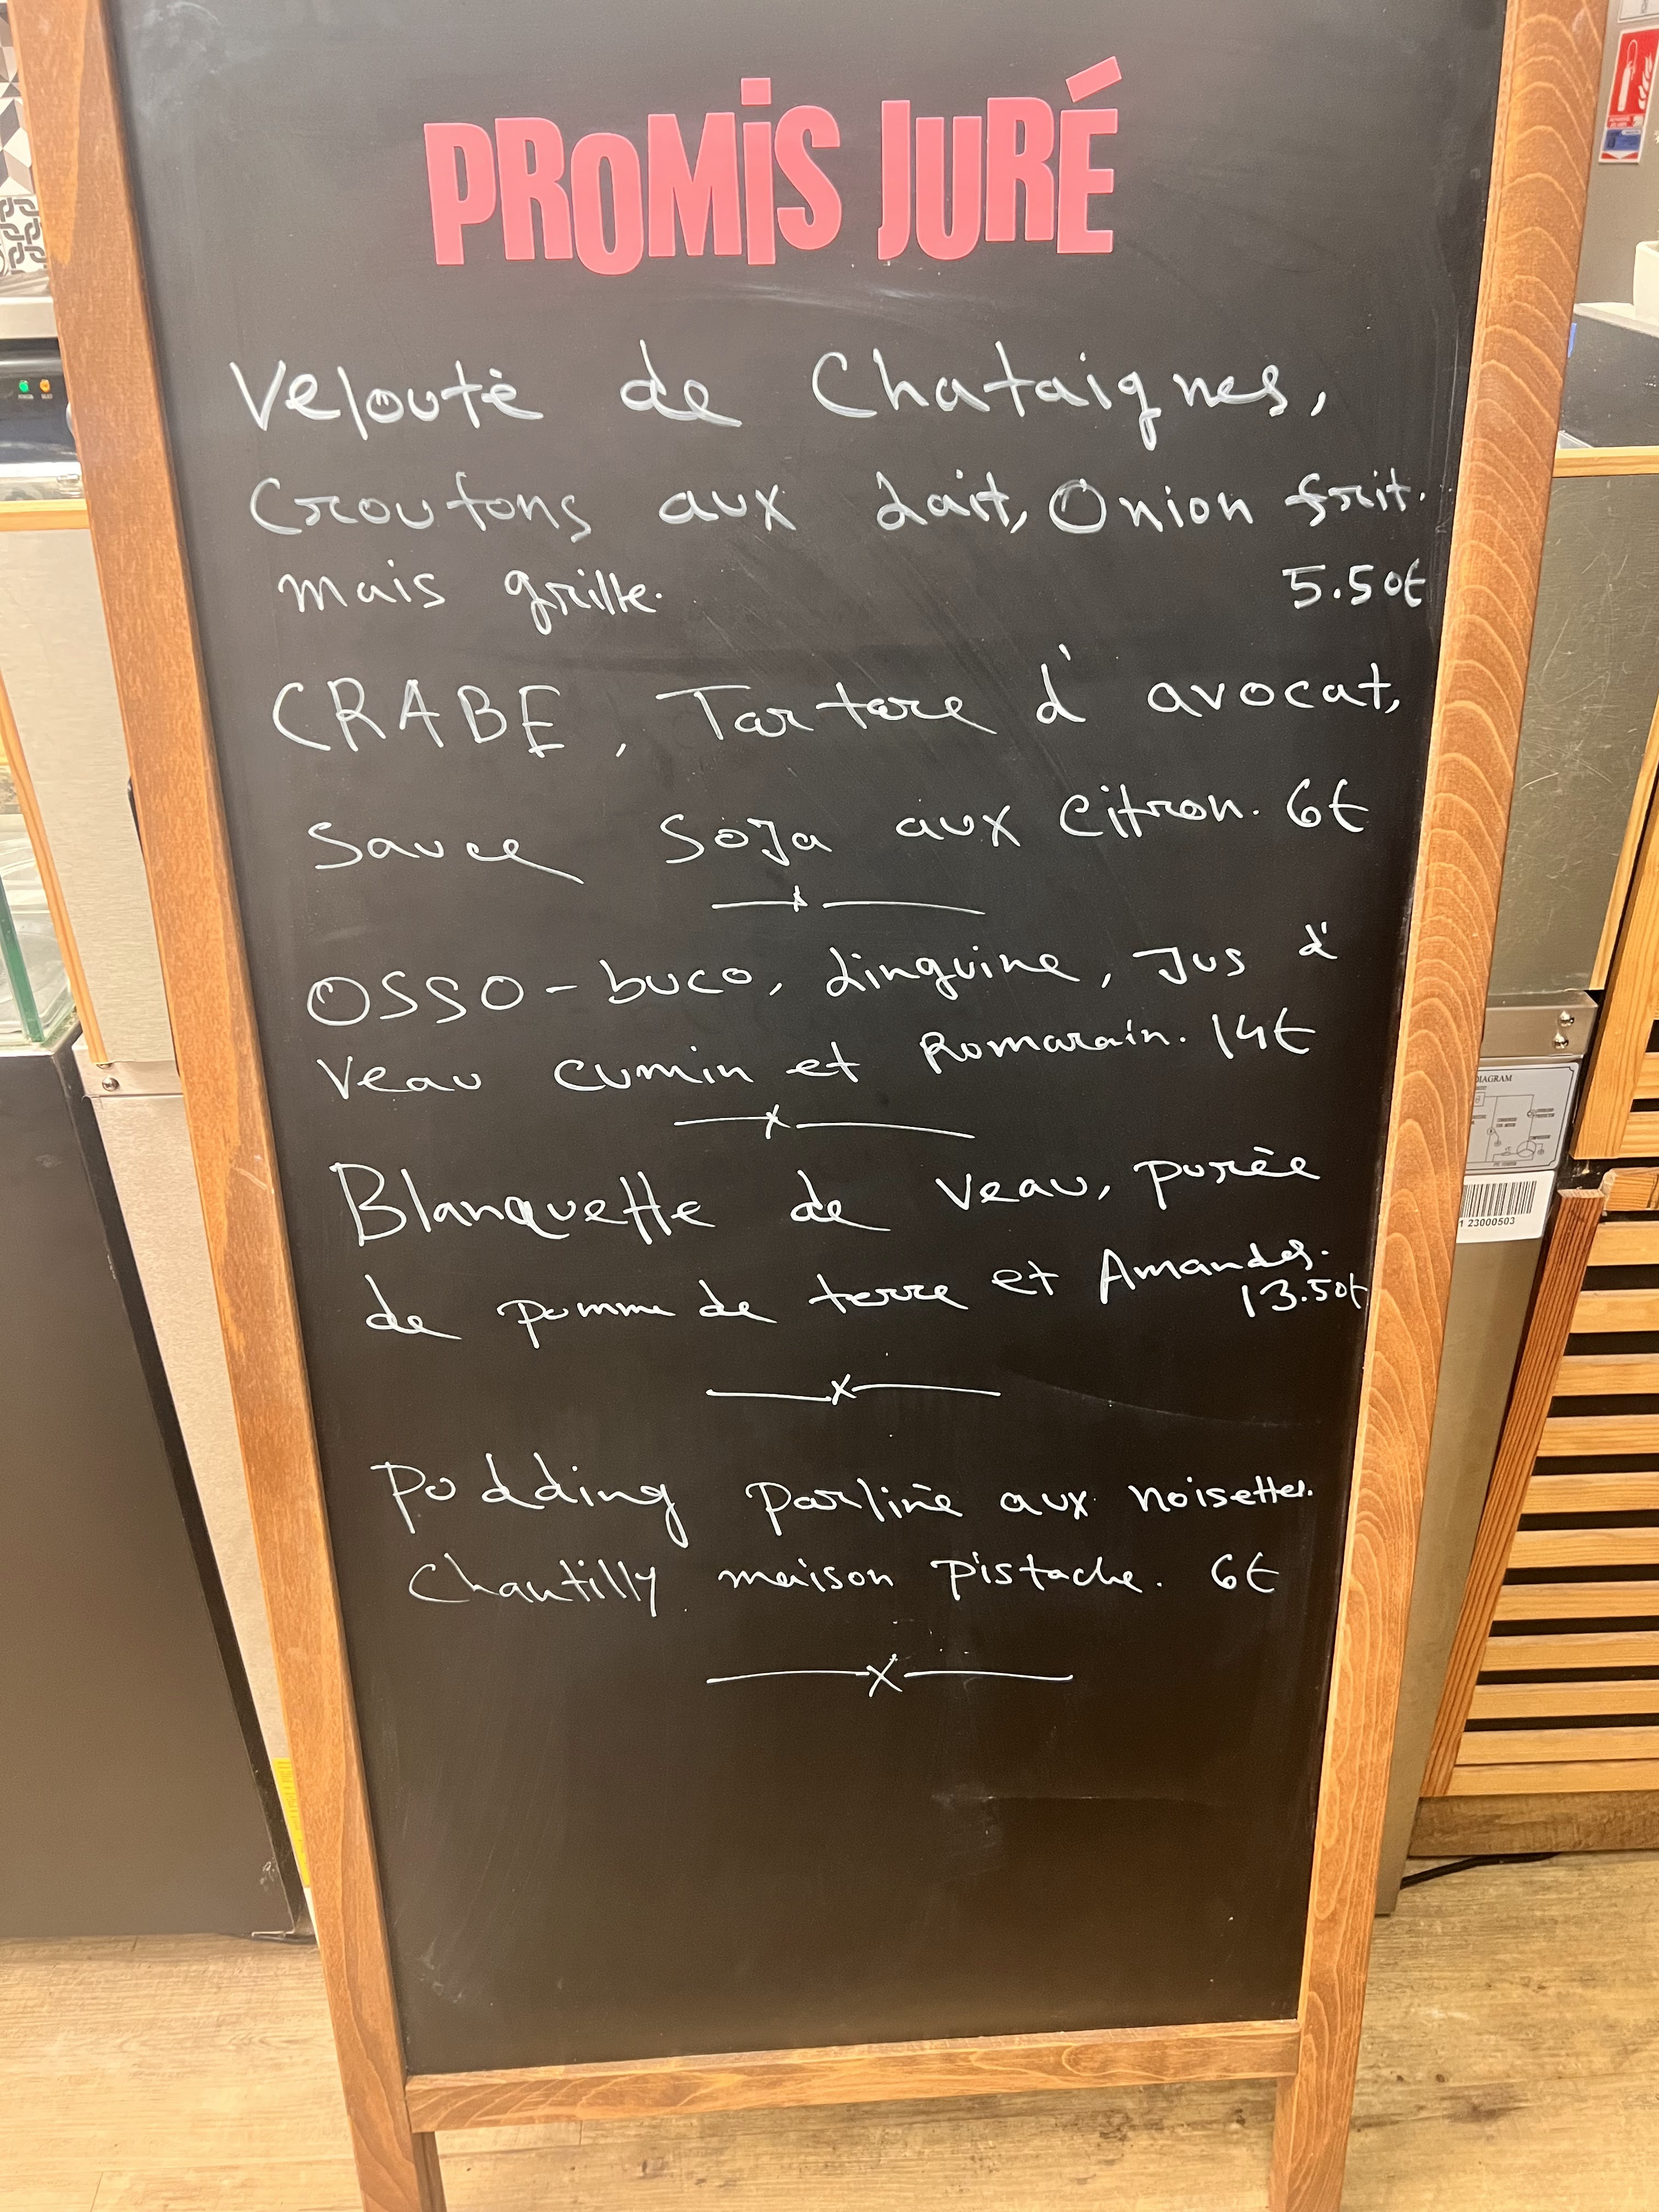 PROMIS JURÉ
Velouté de Chataignes,
Croutons aux Lait, Onion frit.
mais grille.
5.50€
CRABE, Tartare d'avocat,
Sauce Soja aux Citron. 6€
OSSO-buco, Linguine, Jus d'
Veau cumin et Romarain. 14€
Blanquette de veau, purèe
de pomme de terre et Amandes.
13.50€
Podding parlinè aux noisettes.
Chantilly maison Pistache. 6€
DIAGRAM
1 23000503